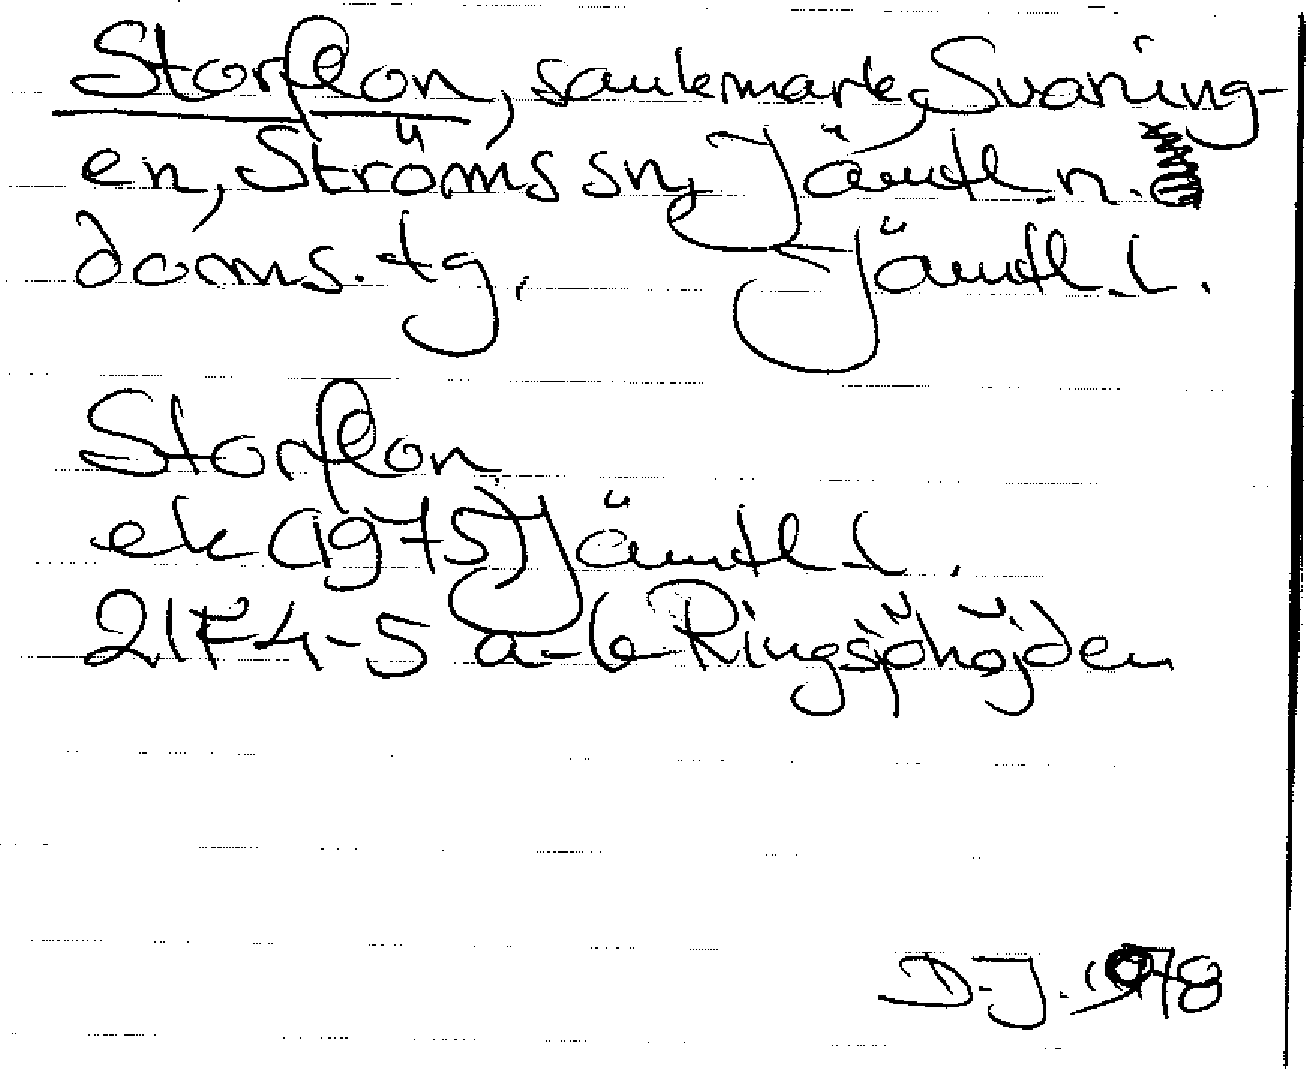 Storflon, sankmark, Svaning-
en, Ströms sn, Jämtl. n.
doms. tg, Jämtl. l.
Storflon
ek (1975) Jämtl. l.
21F4-5 a-b Ringsjöhöjden
D.J. 1978